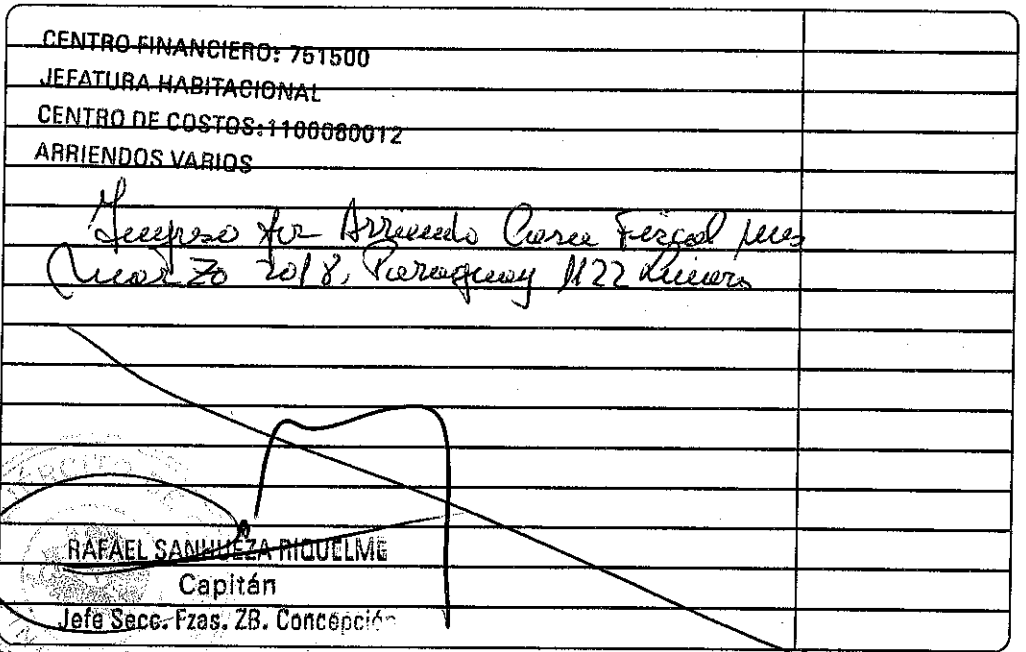 CENTRO FINANCIERO: 751500
JEFATURA HABITACIONAL
CENTRO DE COSTOS: 1100080012
ARRIENDOS VARIOS
Ingreso por Arriendo Casa Fiscal mes
Marzo 2018, Paraguay 1122 Linares
EJÉRCITO
RAFAEL SANHUEZA RIQUELME
Capitán
Jefe Secc. Fzas. ZB. Concepción